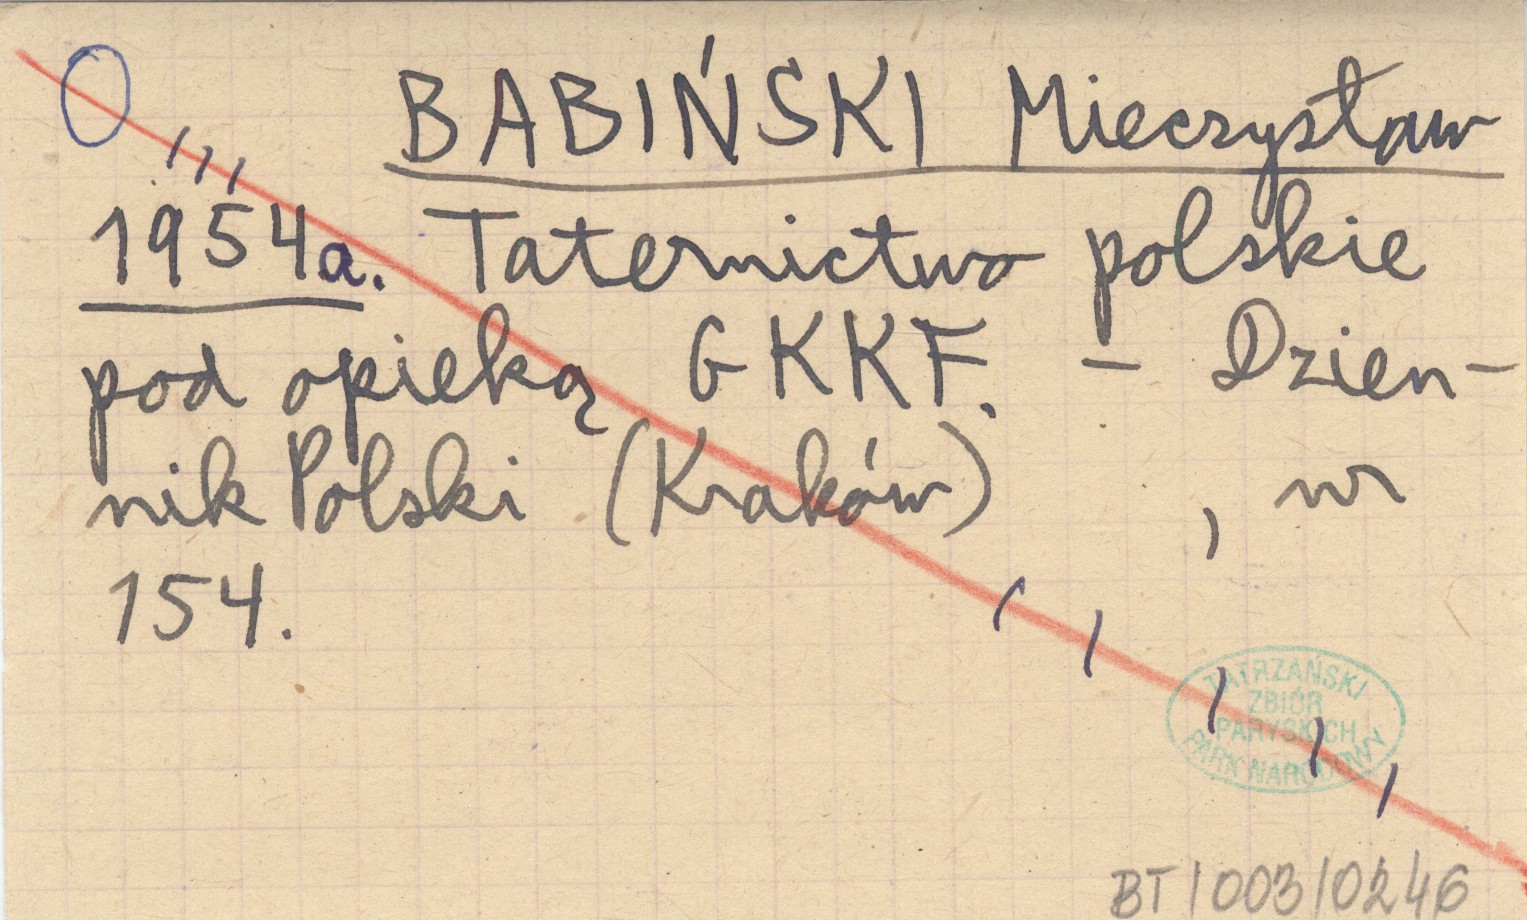 BABIŃSKI Mieczysław
1954a. Taternictwo polskie
pod opieką GKKF. – Dzien-
nik Polski (Kraków) , nr
154.
TATRZAŃSKI
ZBIÓR
PARYSKICH
PARK NARODOWY
BT/003/0246